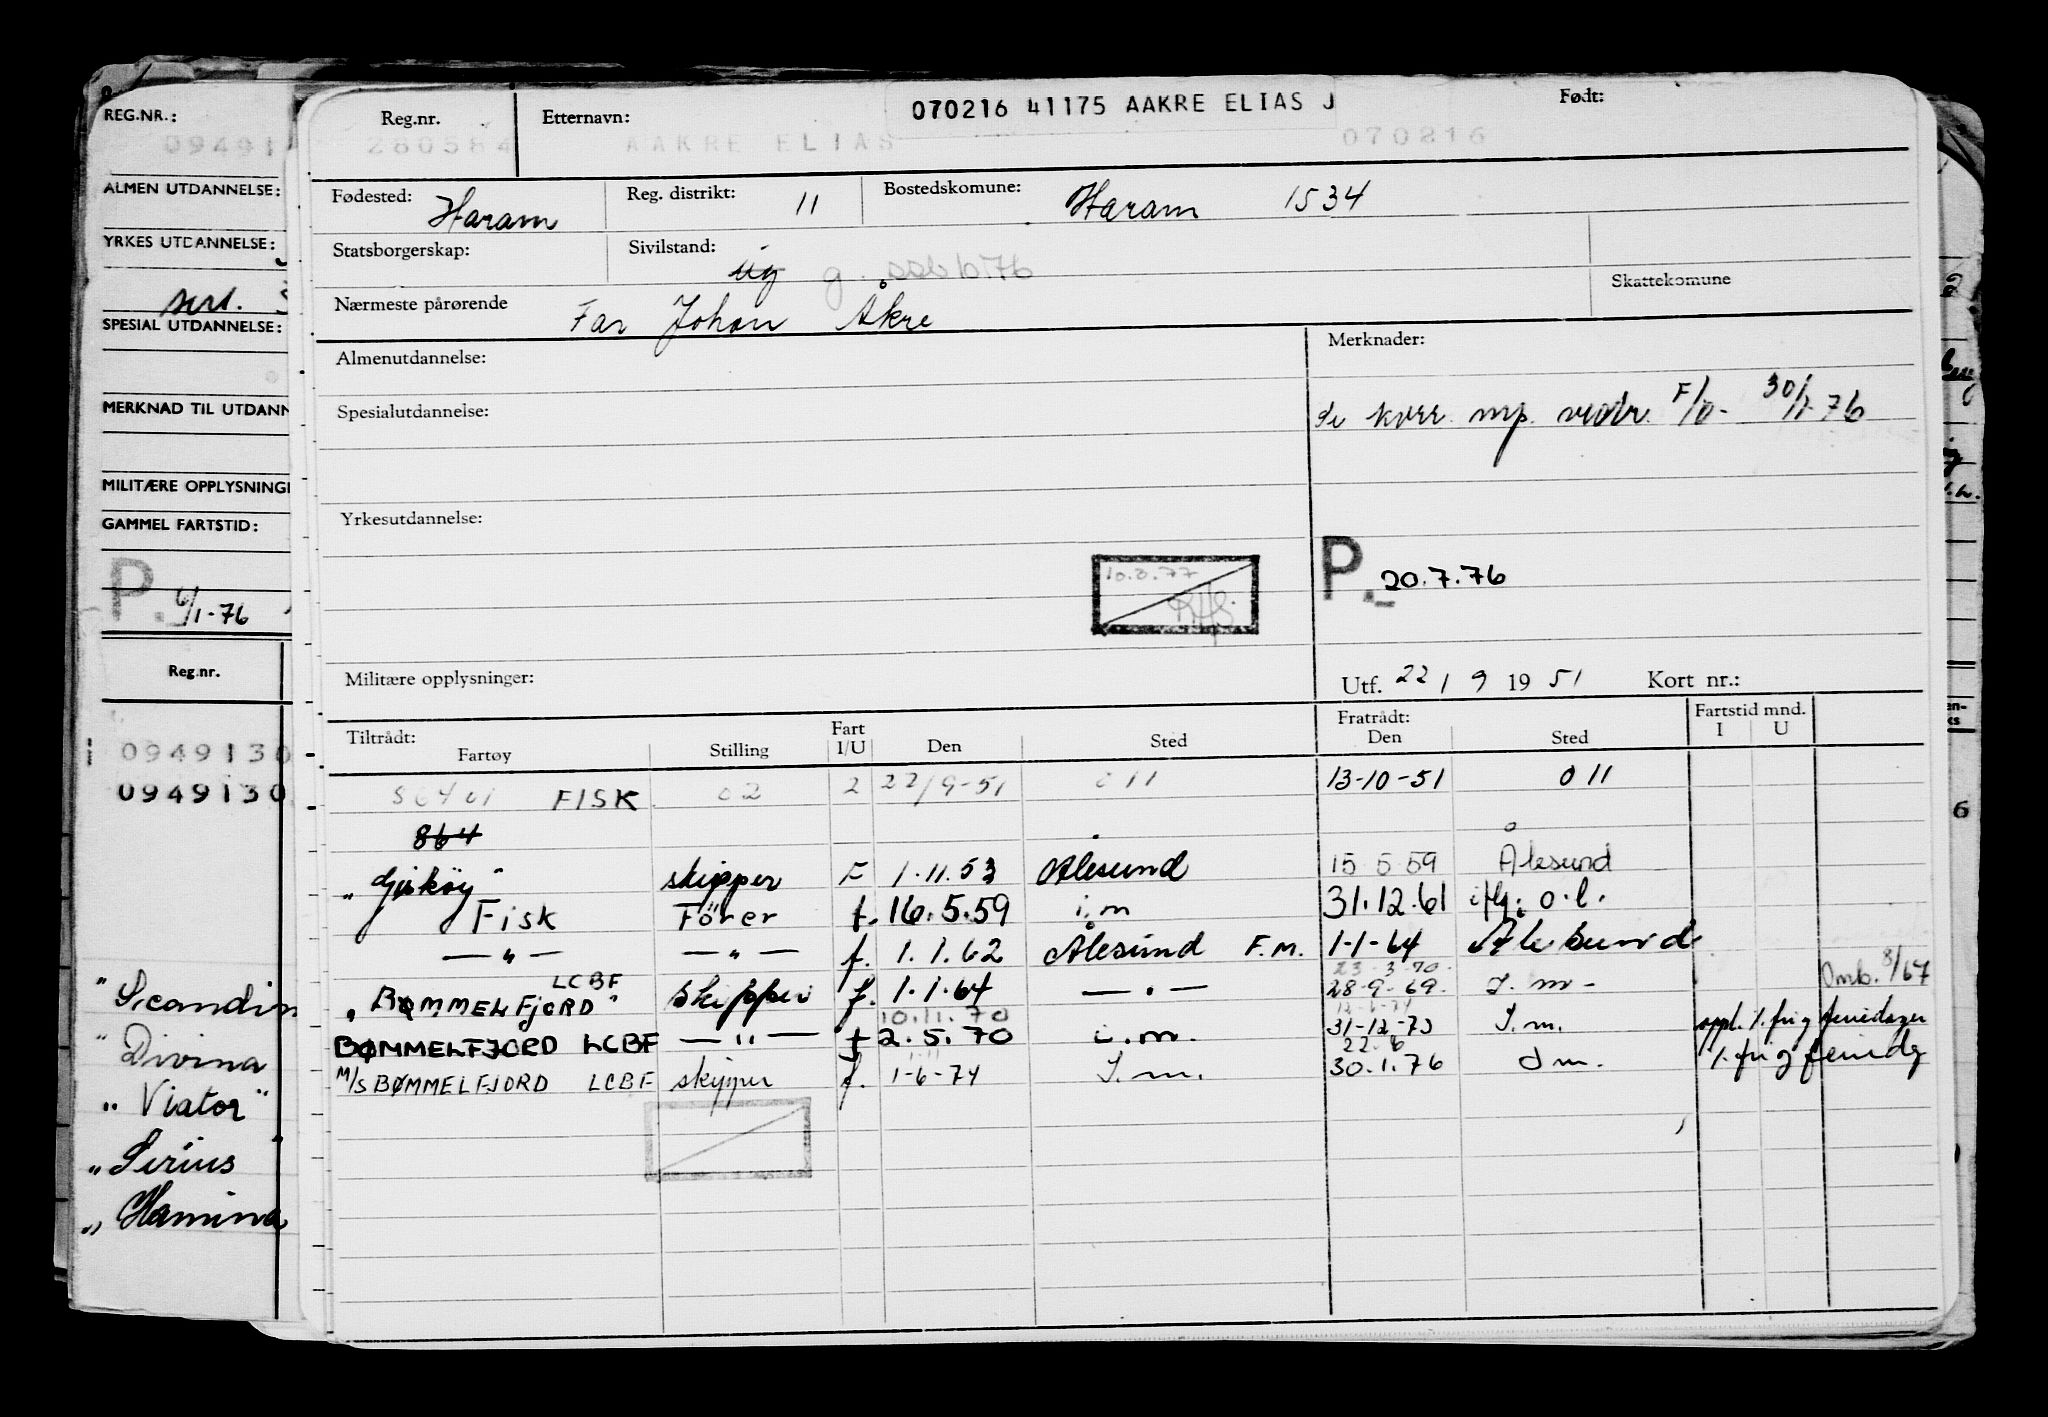 REG.NR.:
09491
ALMEN UTDANNELSE:
YRKES UTDANNELSE:
SPESIAL UTDANNELSE:
MERKNAD TIL UTDANN
MILITÆRE OPPLYSNINGE
GAMMEL FARTSTID:
P. 6/1-76
Reg.nr.
0949130
0949130
"Scandin
"Divina
"Viator"
"Sirius"
"Hamina
Reg.nr. Etternavn: 070216 41175 AAKRE ELIAS J Født:
280584 AAKRE ELIAS 070216
Fødested: Haram Reg. distrikt: 11 Bostedskomune: Haram 1534
Statsborgerskap: Sivilstand: ug g.
Skattekomune
Nærmeste pårørende Far Johan Åkre
Almenutdannelse: Merknader:
Spesialutdannelse: se korr. mp. vedr. F/O- 30/11-76
Yrkesutdannelse:
10.3.77
P. 20.7.76
Militære opplysninger: Utf. 22/9 1951 Kort nr.:
Tiltrådt: Fart Fratrådt: Fartstid mnd.
Fartøy Stilling I/U Den Sted Den Sted I U
56401 FISK 02 2 22/9-51 011 13-10-51 011
864
"Giskøy" skipper F 1.11.53 Ålesund 15 5 59 Ålesund
Fisk Förer f. 16.5.59 i.m 31.12.61 iflg. o.l.
— " — — " — f. 1.1.62 Ålesund F.M. 1-1-64 Ålesund
23-3-70.
LCBF
"BØMMELFJORD" skipper f. 1.1.64 — " — 28-9-69. I.m- Omb. 8/67
10.11.70
BØMMELFJORD LCBF — " — f 2.5.70 i.m. 31-12-73 I.m. oppl. 1. fri g feriedager
22.6
M/S BØMMELFJORD LCBF skipper f. 1-6-74 I.m. 30.1.76 I m. 1. fri g feriedg